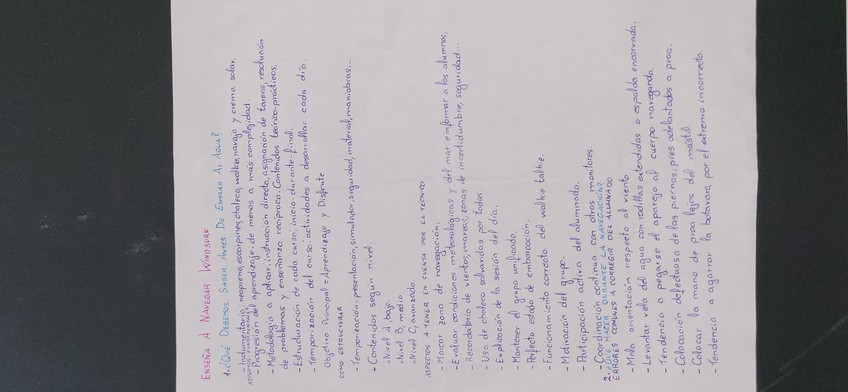 ENSEÑA A NAVEGAR WINDSURF
1. ¿QUÉ DEBEMOS SABER ANTES DE ENTRAR AL AGUA?
- Indumentaria: neopreno, escarpines, chaleco, walkie, navaja y crema solar.
- Progresión del aprendizaje: de menos a más complejidad.
- Metodología a aplicar: instrucción directa, asignación de tareas, resolución
de problemas y enseñanza recíproca. Contenidos teórico-prácticos.
- Estructuración de cada curso: inicio-durante-final.
- Temporización del curso: actividades a desarrollar cada día.
Objetivo Principal = Aprendizaje y Disfrute
COMO ESTRUCTURAR
- Temporización: presentación, simulador, seguridad, material, maniobras...
- Contenidos según nivel.
Nivel A, bajo.
Nivel B, medio
Nivel C, avanzado
ASPECTOS A TENER EN CUENTA POR EL TÉCNICO
- Marcar zona de navegación.
- Evaluar condiciones meteorológicas y del mar e informar a los alumnos.
- Recordatorio de vientos, mareas, zonas de incertidumbre, seguridad...
- Uso de chaleco salvavidas por todos.
- Explicación de la sesión del día.
- Mantener el grupo unificado.
- Perfecto estado de embarcación.
- Funcionamiento correcto del walkie talkie.
- Motivación del grupo.
- Participación activa del alumnado.
- Coordinación continua con otros monitores.
2. ¿QUÉ HACER DURANTE LA NAVEGACIÓN?
ERRORES COMUNES A CORREGIR DEL ALUMNADO
- Mala orientación respecto al viento
- Levantar vela del agua con rodillas extendidas o espalda encorvada.
- Tendencia a pegarse el aparejo al cuerpo navegando.
- Colocación defectuosa de las piernas, pies adelantados a proa.
- Colocar la mano de proa lejos del mástil.
- Tendencia a agarrar la botavara, por el extremo incorrecto.